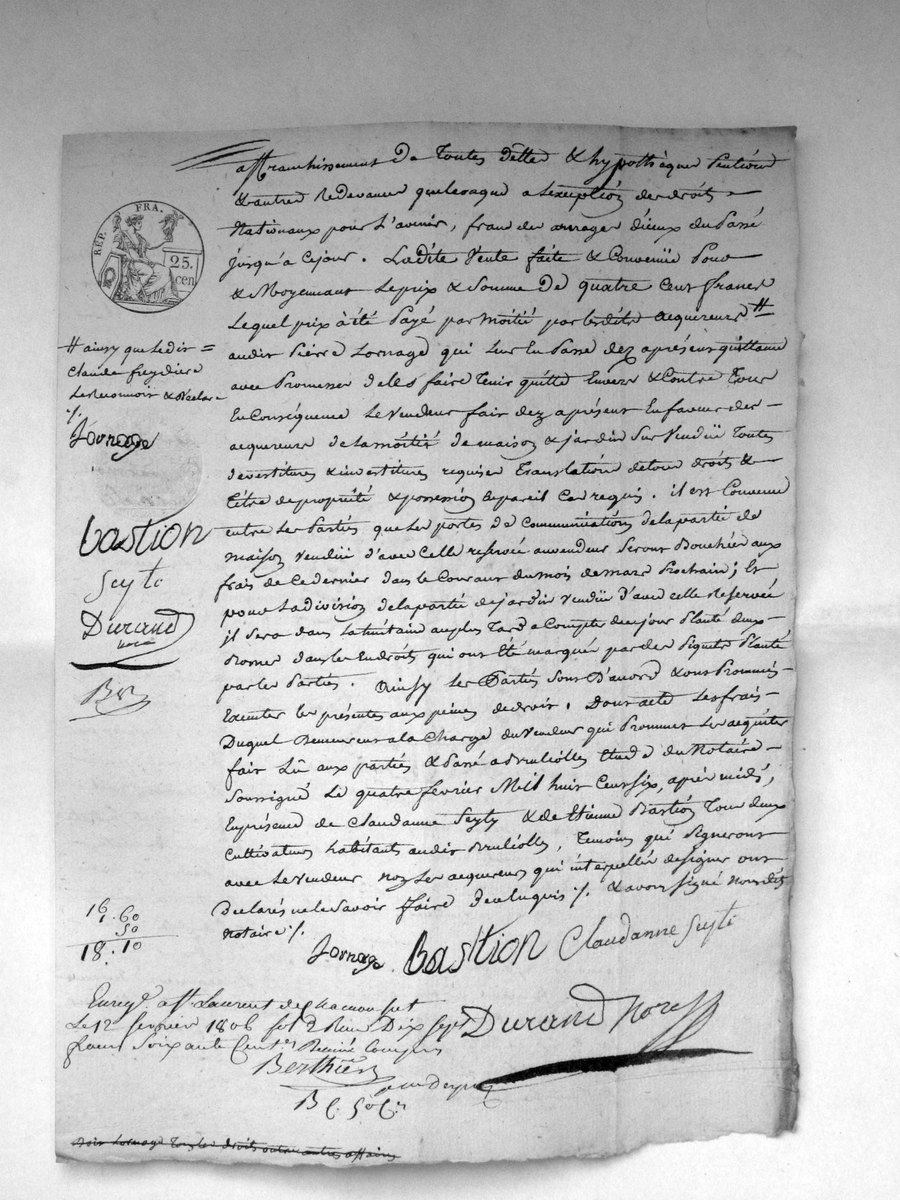 affranchissement de Toutes dettes & hypothèques Pentions
& autres Redevances quelcosque a lexeption des droits
Nationaux pour l'avenir, franc des arrages d'iceux du Passé
jusqu'à ce jour. Ladite Vente faite & Convenüe Pour
& Moyennant Le prix & Somme De quatre Cent francs
Lequel prix à été Payé par Moitié par lesdits acquereurs #
audit Pierre Jornage qui leur En Passe dez apresent quittance
avec Promesse de les faire Tenir quitte Envers & Contre Tous
En Conséquence Le Vendeur fait dez apresent En faveur des
acquereurs de la moitié de maison & jardin Sus Vendüe Toutes
devestitures & investitures requises Translation de tous droits &
titre de propriété & possession apareil Cas requis. il est Convenu
entre Les Parties que Les portes de Communication de la partie de
Maison Vendüe d'avec Celle reservée au vendeur Seront Bouchées aux
frais de Ce dernier dans le Courant du mois de mars Prochain; Et
pour La division de la partie de jardin Vendüe D'avec celle Reservée
il Sera dans La huitain au plus Tard a Compter de ce jour Planté deux
Bornes dans les Endroits qui ont Eté marqués par des Piquets Planté
par les Parties. Ainsy Les Parties Sont D'accord & ont Promis
Executer les presentes aux peines de droit. Dont acte Les frais
Duquel Demeurent a la Charge du Vendeur qui Promet Les acquiter
fait Lû aux parties & Passé a Brulliolles Etude du Notaire
Soussigné Le quatre février Mil huit Cent Six, après midi,
En présence de Claudanne Seyty & de Etienne Bastion Tous deux
Cultivateurs habitants audit Brulliolles, Temoins qui Signeront
avec Le vendeur non Les acquereurs qui interpellés de signer ont
Declarés ne le Savoir faire de ce Enquis ./. & avons signé Nous dit
Notaire ./.
Jornage Bastion Claudanne Seyte
Durand Nore
RÉP. FRA.
25. cen
# ainsy que ledit =
Claude freydiere
Le Reconnoit & déclare
./.
Jornage
Bastion
Seyte
Durand
nore
16. 60
1. 50
18. 10
Enreg. a St. Laurent de Chamousset
Le 12 fevrier 1806 fol 2 Recu Dix Sept
francs Soixante Cent.es
Berthier